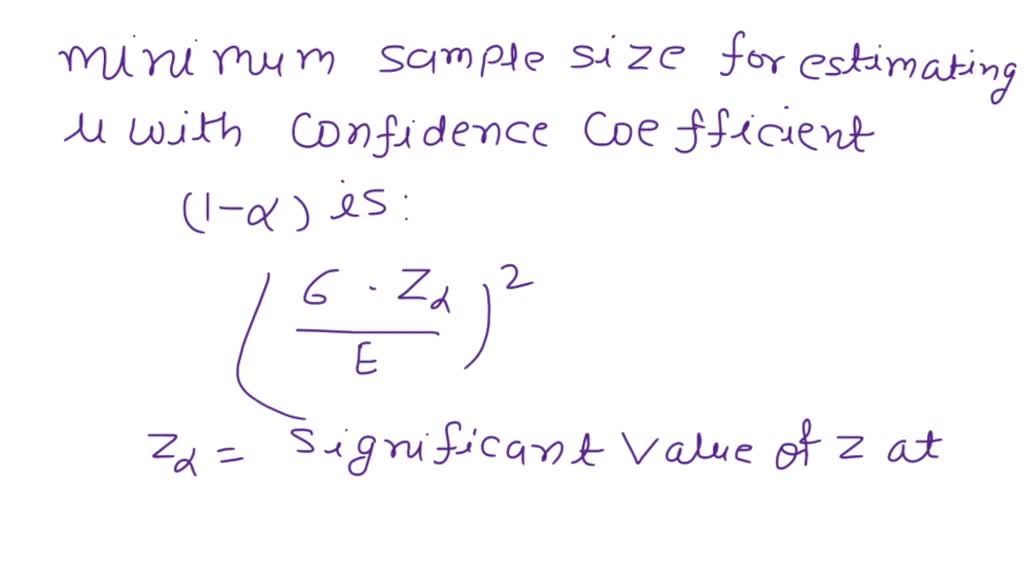 minimum sample size for estimating
μ with confidence coefficient
(1-α) is:
(σ . Zα / E)²
Zα = significant value of z at